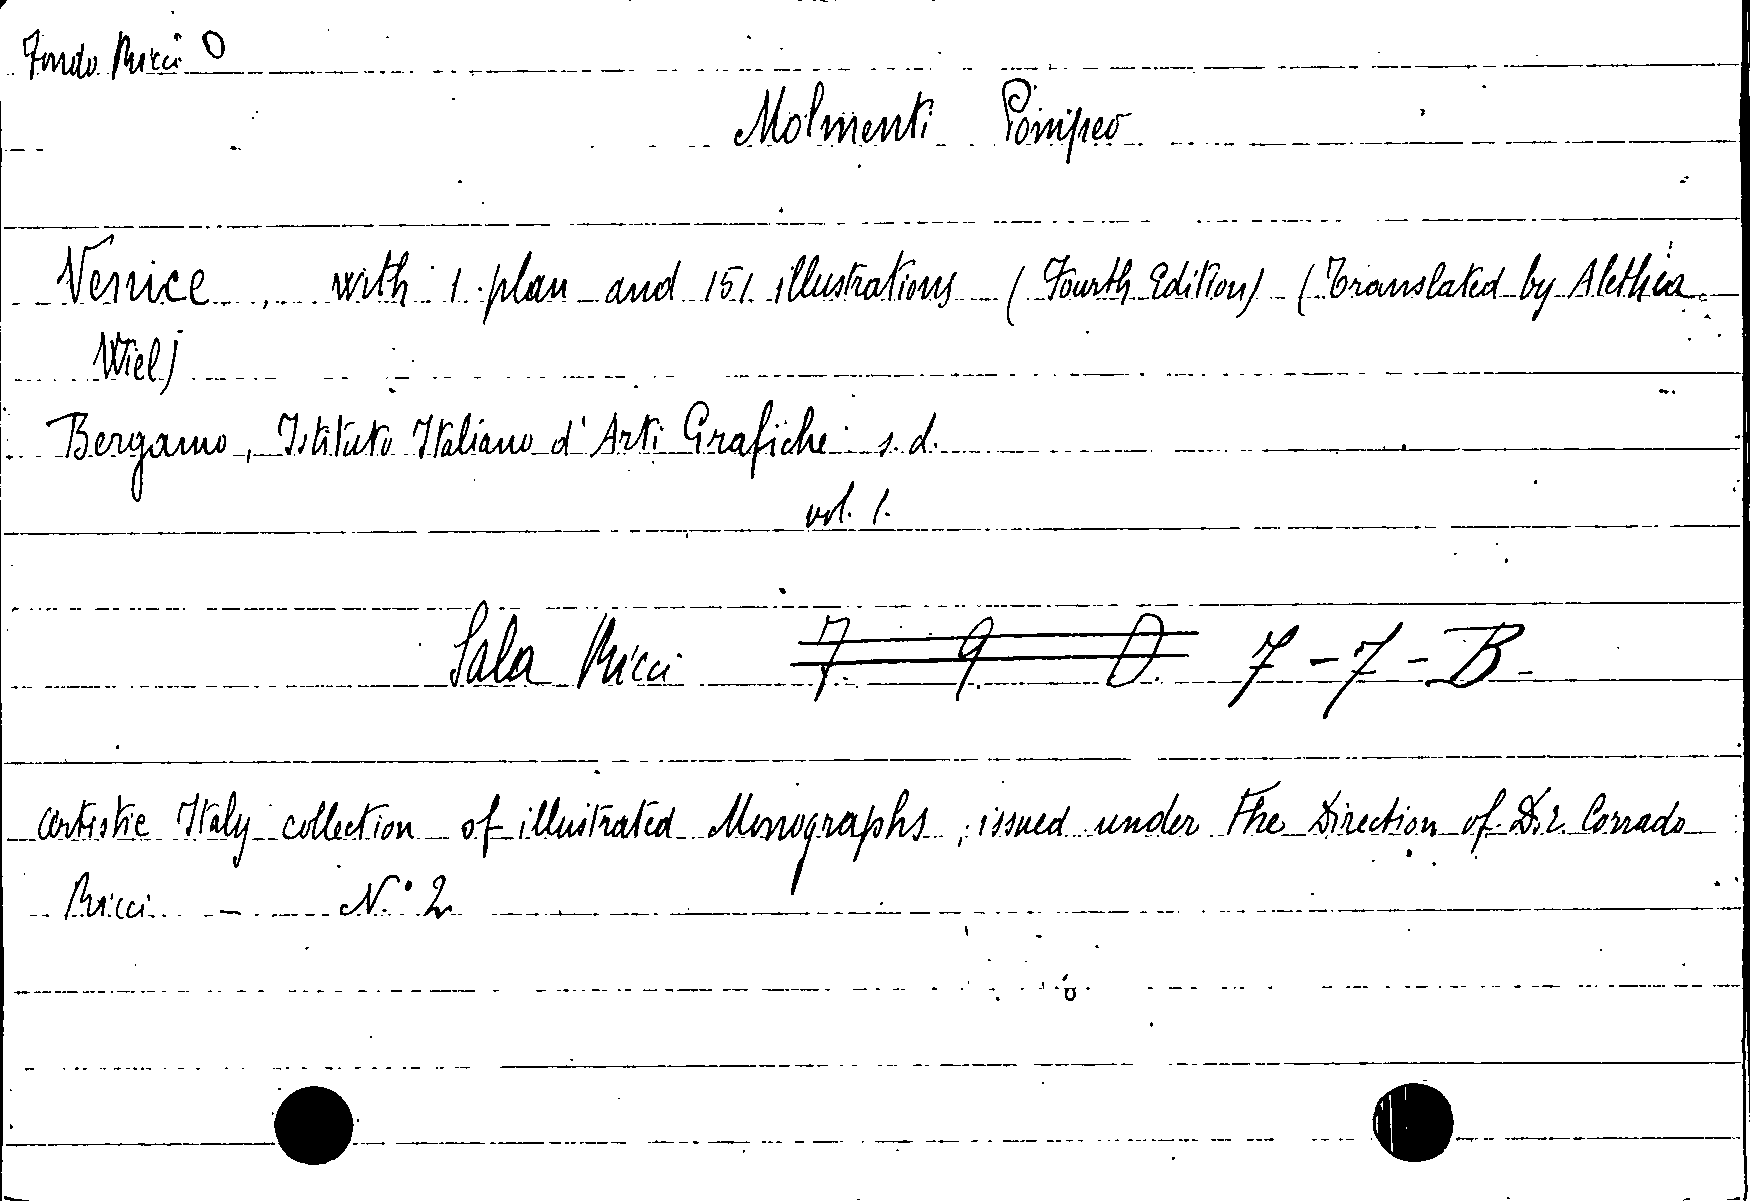 Fondo Ricci O
Molmenti Pompeo
Venice, with 1 plan and 151 illustrations (Fourth Edition) (Translated by Alethea
Wiel)
Bergamo, Istituto Italiano d'Arti Grafiche s.d.
vol. 1.
Sala Ricci 7. 9. O. 7-7-B.
Artistic Italy collection of illustrated Monographs, issued under The Direction of D.r. Corrado
Ricci - N.° 2